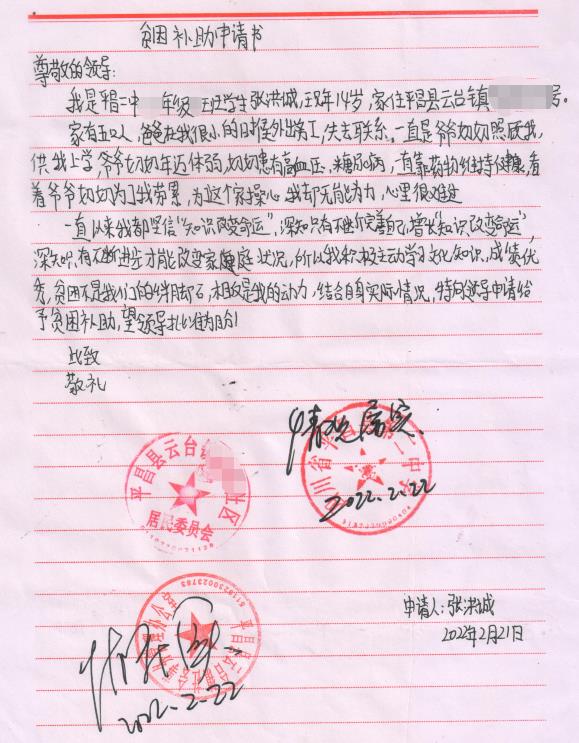 贫困补助申请书
尊敬的领导:
我是平昌二中 年级 班学生张洪城,现年14岁,家住平昌县云台镇 号。
家有五口人,爸爸在我很小的时候外出务工,失去联系。一直是爷爷奶奶照顾我,
供我上学,爷爷奶奶年迈体弱,奶奶患有高血压、糖尿病,一直靠药物维持健康,看
着爷爷奶奶为了我劳累,为这个家操心,我却无能为力,心里很难过
一直以来我都坚信"知识改变命运",深知只有不断完善自己,增长"知识改变命运",
深知只有不断进步才能改变家庭状况,所以我积极主动学习文化知识,成绩优
秀,贫困不是我们的绊脚石,相反是我的动力,结合自身实际情况,特向领导申请给
予贫困补助,望领导批准为盼!
此致
敬礼
情况属实
四川省平昌县第二中学
2022.2.22
平昌县云台镇 社区
居民委员会
申请人:张洪城
2022年2月21日
情况属实
2022.2.22